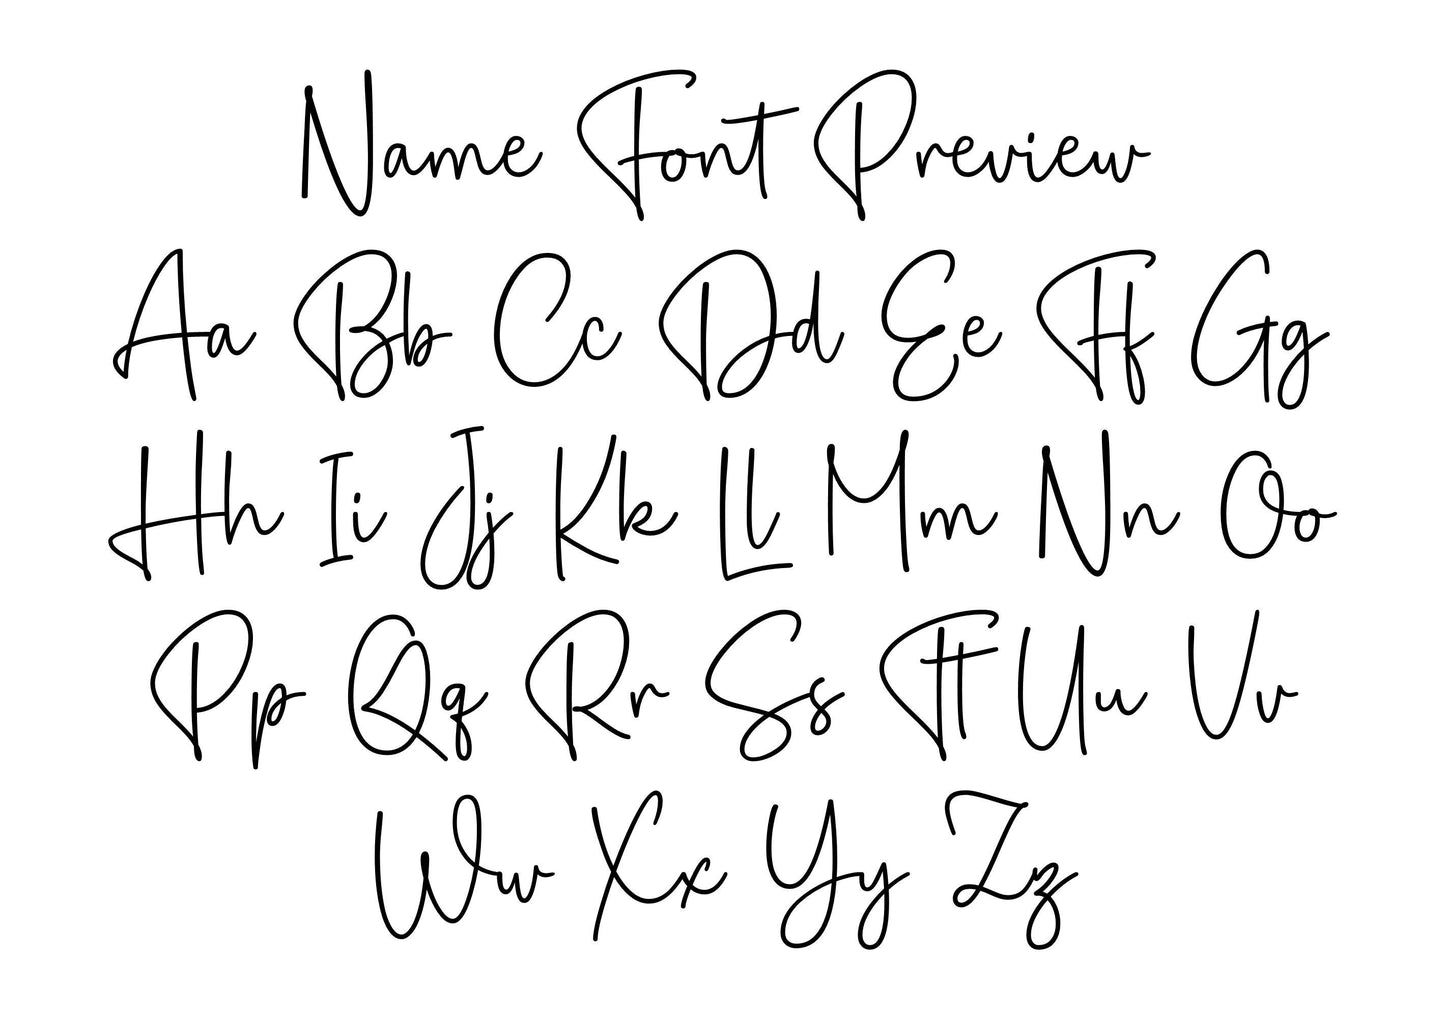 Name Font Preview
Aa Bb Cc Dd Ee Ff Gg
Hh Ii Jj Kk Ll Mm Nn Oo
Pp Qq Rr Ss Tt Uu Vv
Ww Xx Yy Zz